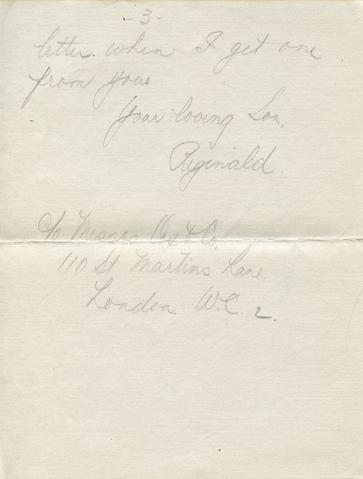 -3-
letter when I get one
from you
Your loving Son,
Reginald.
c/o Messrs & Co,
110 St Martins Lane
London W.C. 2.